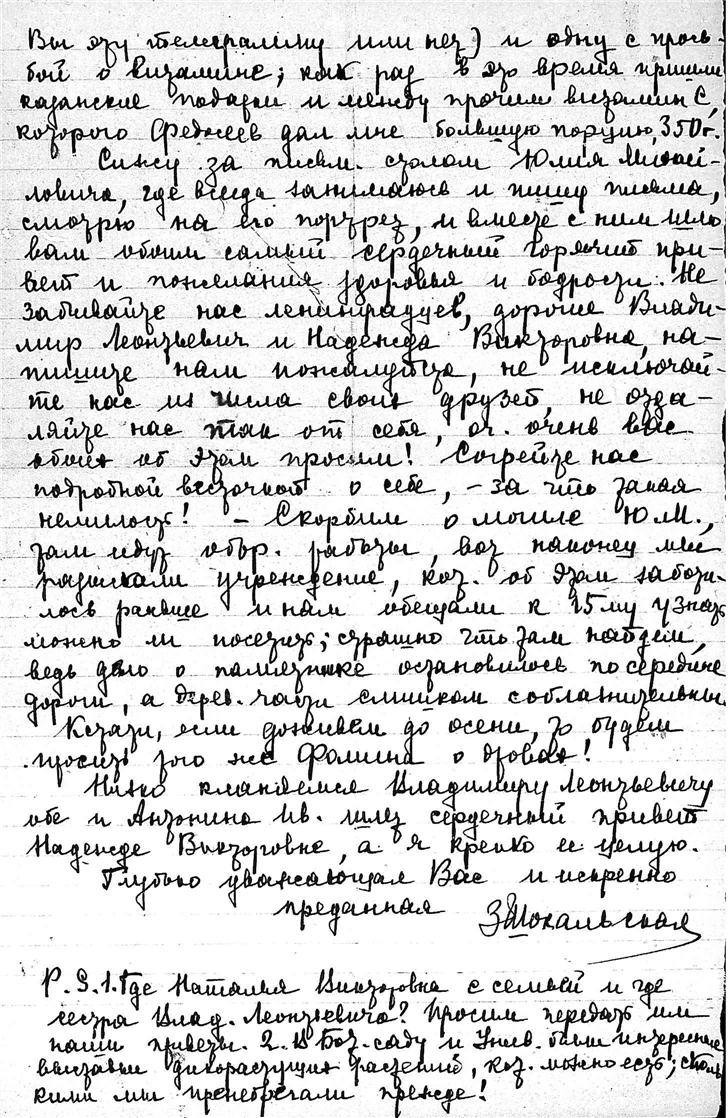 Вы эту телеграмму или нет) и одну с прось-
бой о витамине; как раз в это время пришли
казанские подарки и между прочим витамин С,
которого Федосеев дал мне большую порцию, 350 г.
Сижу за письм. столом Юлия Михай-
ловича, где всегда занимаюсь и пишу письма,
смотрю на его портрет, и вместе с ним шлю
вам обоим самый сердечный горячий при-
вет и пожелания здоровья и бодрости. Не
забывайте нас ленинградцев, дорогие Влади-
мир Леонтьевич и Надежда Викторовна, на-
пишите нам пожалуйста, не исключай-
те нас из числа своих друзей, не отда-
ляйте нас так от себя, оч. очень вас
обоих об этом просим! Согрейте нас
подробной весточкой о себе, – за что такая
немилость! – Скорбим о могиле Ю.М.,
там идут обор. работы, вот наконец мы
разыскали учреждение, кот. об этом заботи-
лось раньше и нам обещали к 15му узнать
можно ли посетить; страшно что там найдем,
ведь дело о памятнике остановилось посередине
дороги, а дерев. части слишком соблазнительны.
Кстати, если доживем до осени, то будем
просить того же Фомина о дровах!
Низко кланяемся Владимиру Леонтьевичу
обе и Антонина Ив. шлет сердечный привет
Надежде Викторовне, а я крепко ее целую.
Глубоко уважающая Вас и искренно
преданная ЗШокальская
P.S. 1. Где Наталья Викторовна с семьей и где
сестра Влад. Леонтьевича? Просим передать им
наши приветы. 2. В Бот. саду и Унив. были интересные
выставки дикорастущих растений, кот. можно есть;
кими мы пренебрегали прежде!